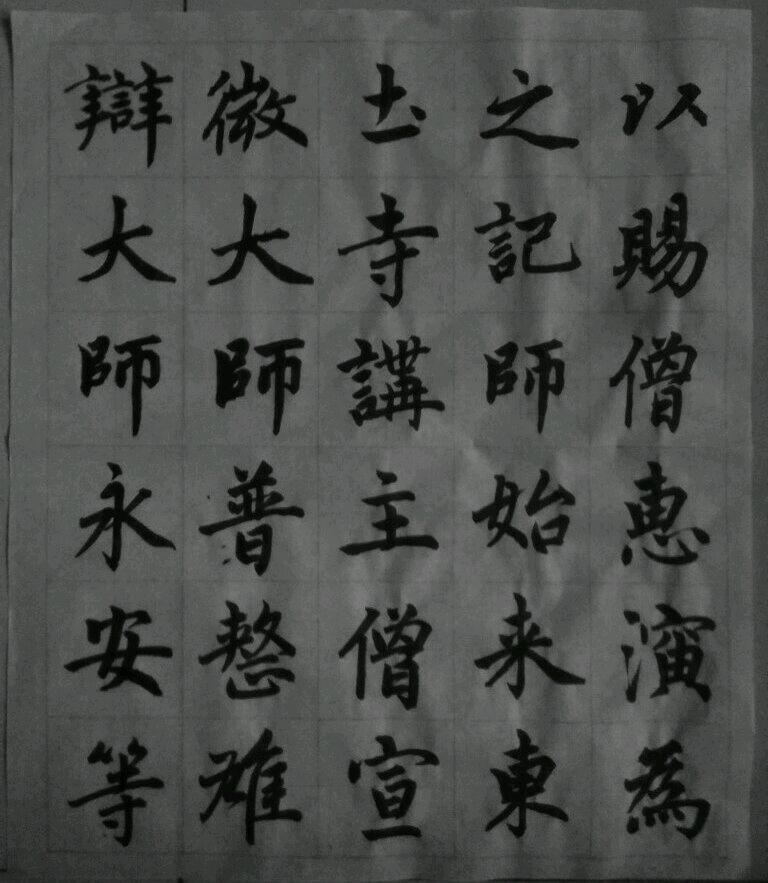 以賜僧惠演為
之記師始来東
土寺講主僧宣
微大師普整雄
辯大師永安等